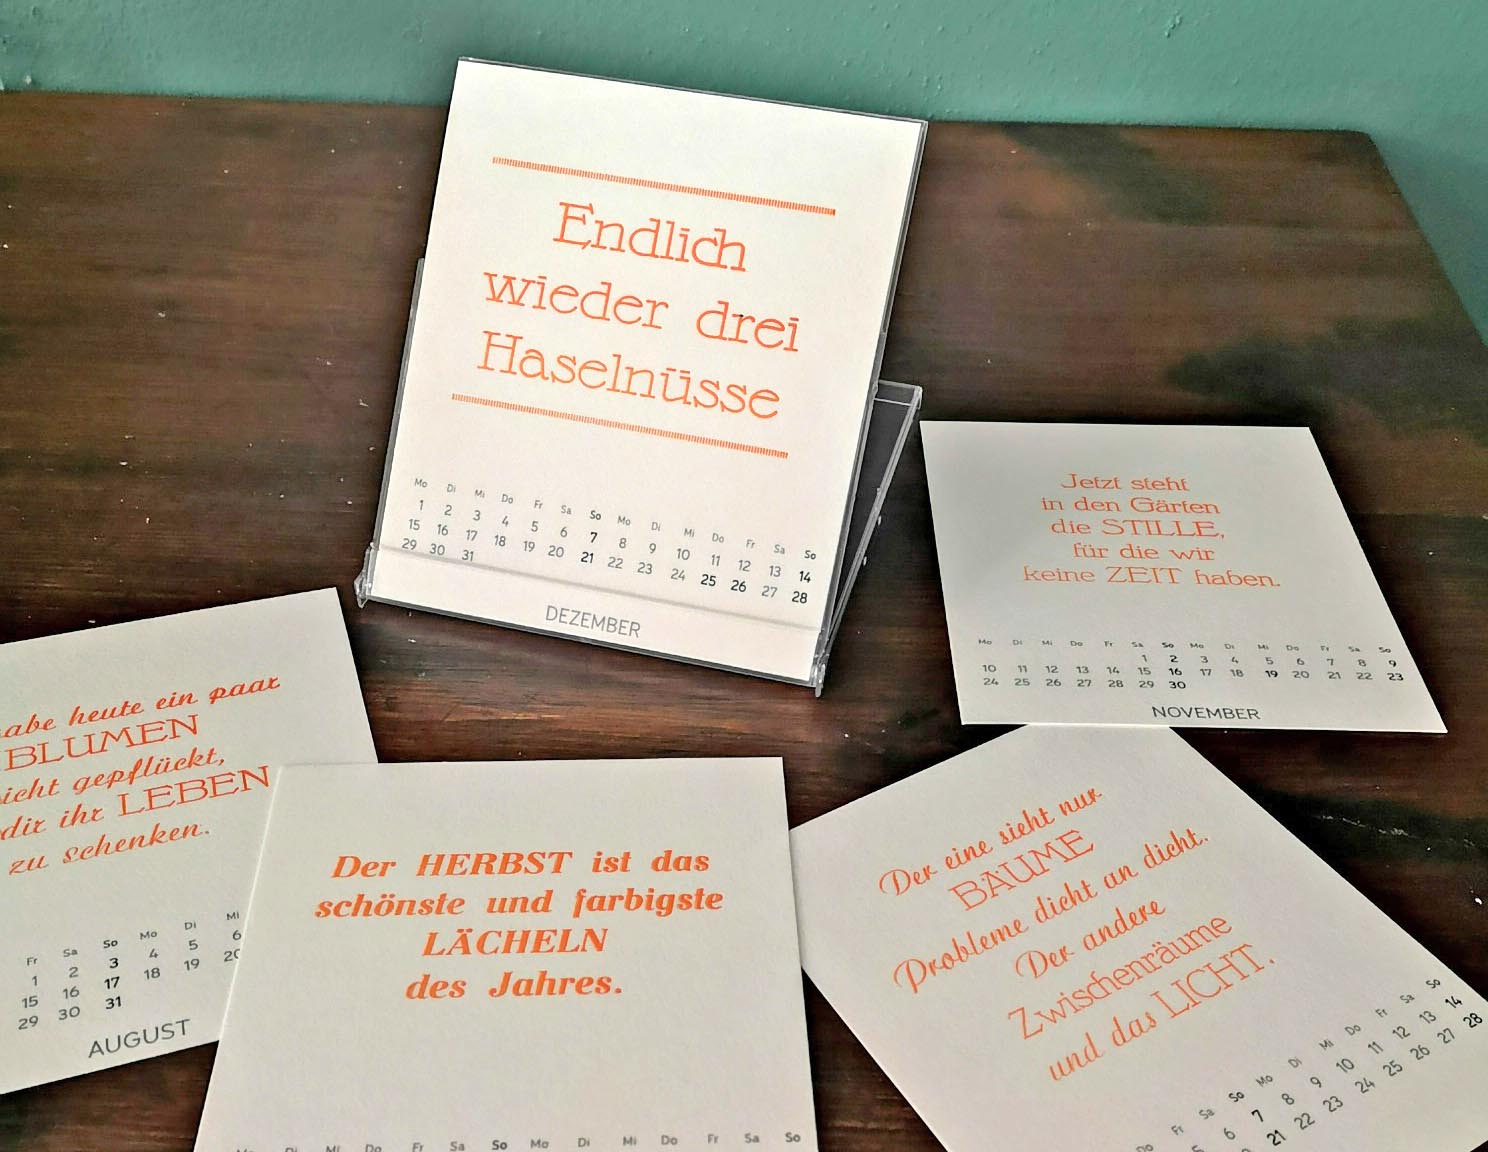 Endlich
wieder drei
Haselnüsse
Mo Di Mi Do Fr Sa So Mo Di Mi Do Fr Sa So
1 2 3 4 5 6 7 8 9 10 11 12 13 14
15 16 17 18 19 20 21 22 23 24 25 26 27 28
29 30 31
DEZEMBER
Jetzt steht
in den Gärten
die STILLE,
für die wir
keine ZEIT haben.
Mo Di Mi Do Fr Sa So Mo Di Mi Do Fr Sa So
1 2 3 4 5 6 7 8 9
10 11 12 13 14 15 16 17 18 19 20 21 22 23
24 25 26 27 28 29 30
NOVEMBER
heute ein paar
BLUMEN
gepflückt,
dir ihr LEBEN
zu schenken.
Fr Sa So Mo Di Mi
1 2 3 4 5 6
15 16 17 18 19
29 30 31
AUGUST
Der HERBST ist das
schönste und farbigste
LÄCHELN
des Jahres.
Mo Di Mi Do Fr Sa So Mo Di Mi Do Fr Sa So
Der eine sieht nur
BÄUME
Probleme dicht an dicht.
Der andere
Zwischenräume
und das LICHT.
Do Fr Sa So Mo Di Mi Do Fr Sa So
6 7 8 9 10 11 12 13 14
21 22 23 24 25 26 27 28